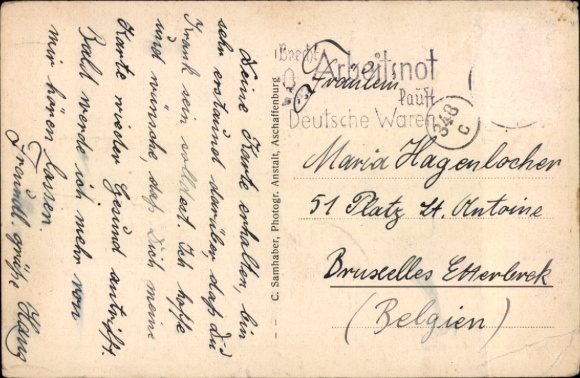 Deine Karte erhalten, bin
sehr erstaunt darüber, daß Du
Krank sein solltest. Ich hoffe
und wünsche, daß Dich meine
Karte wieder Gesund antrifft.
Bald werde ich mehr von
mir hören lassen
Freundl. grüße Hans
C. Samhaber, Photogr. Anstalt, Aschaffenburg
Brecht
Arbeitsnot
kauft
Deutsche Waren
348
c
Fräulein
Maria Hagenlocher
51 Platz St. Antoine
Bruxelles Etterbeek
(Belgien)